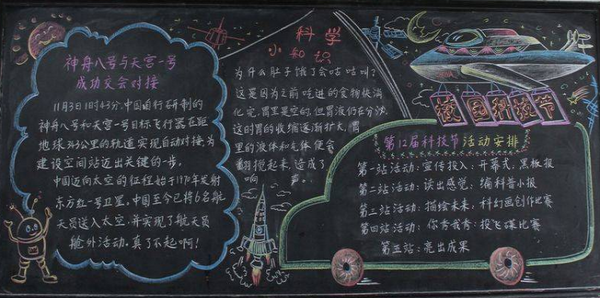 神舟八号与天宫一号
成功交会对接
11月3日1时43分,中国自行研制的
神舟八号和天宫一号目标飞行器在距
地球343公里的轨道实现自动对接,为
建设空间站迈出关键的一步。
中国迈向太空的征程始于1970年发射
东方红一号卫星,中国至今已将6名航
天员送入太空,并实现了航天员
舱外活动,真了不起啊!
科学
小知识
为什么肚子饿了会咕咕叫?
这是因为之前吃进的食物快消
化完,胃里是空的,但胃液仍在分泌,
这时胃的收缩逐渐扩大,胃
里的液体和气体便会
翻搅起来,造成了
响声
校园科技节
第12届科技节活动安排
第一站活动:宣传投入:开幕式,黑板报
第二站活动:读出感觉:编科普小报
第三站活动:描绘未来:科幻画创作比赛
第四站活动:你秀我秀:投飞碟比赛
第五站:亮出成果